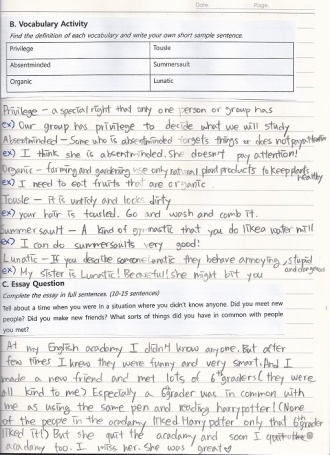 Date. Page.
B. Vocabulary Activity
Find the definition of each vocabulary and write your own short sample sentence.
Privilege Tousle
Absentminded Summersault
Organic Lunatic
Privilege - a special right that only one person or group has
ex) Our group has privilege to decide what we will study
Absentminded - Some who is absentminded forgets things or does not pay attention
ex) I think she is absentminded. She doesn't pay attention!
Organic - farming and gardening use only natural plant products to keep plants healthy
ex) I need to eat fruits that are organic.
Tousle - it is untidy and looks dirty
ex) your hair is tousled. Go and wash and comb it.
Summersault - A kind of gymnastic that you do like a water mill
ex) I can do summersaults very good!
Lunatic - If you describe someone lunatic they behave annoying, stupid and dangerous
ex) My sister is Lunatic! Be careful! She might bit you
C. Essay Question
Complete the essay in full sentences. (10-15 sentences)
Tell about a time when you were in a situation where you didn't know anyone. Did you meet new
people? Did you make new friends? What sorts of things did you have in common with people
you met?
At my English acadamy I didn't know anyone. But after
few times I knew they were funny and very smart. And I
made a new friend and met lots of 6th graders (they were
all kind to me) Especially a 6grader was in common with
me as using the same pen and reading harrypotter! (None
of the people in the acadamy liked Harry potter only that 6th grader
liked it!) But she quit the acadamy and soon I quit the
acadamy too. I miss her. She was great